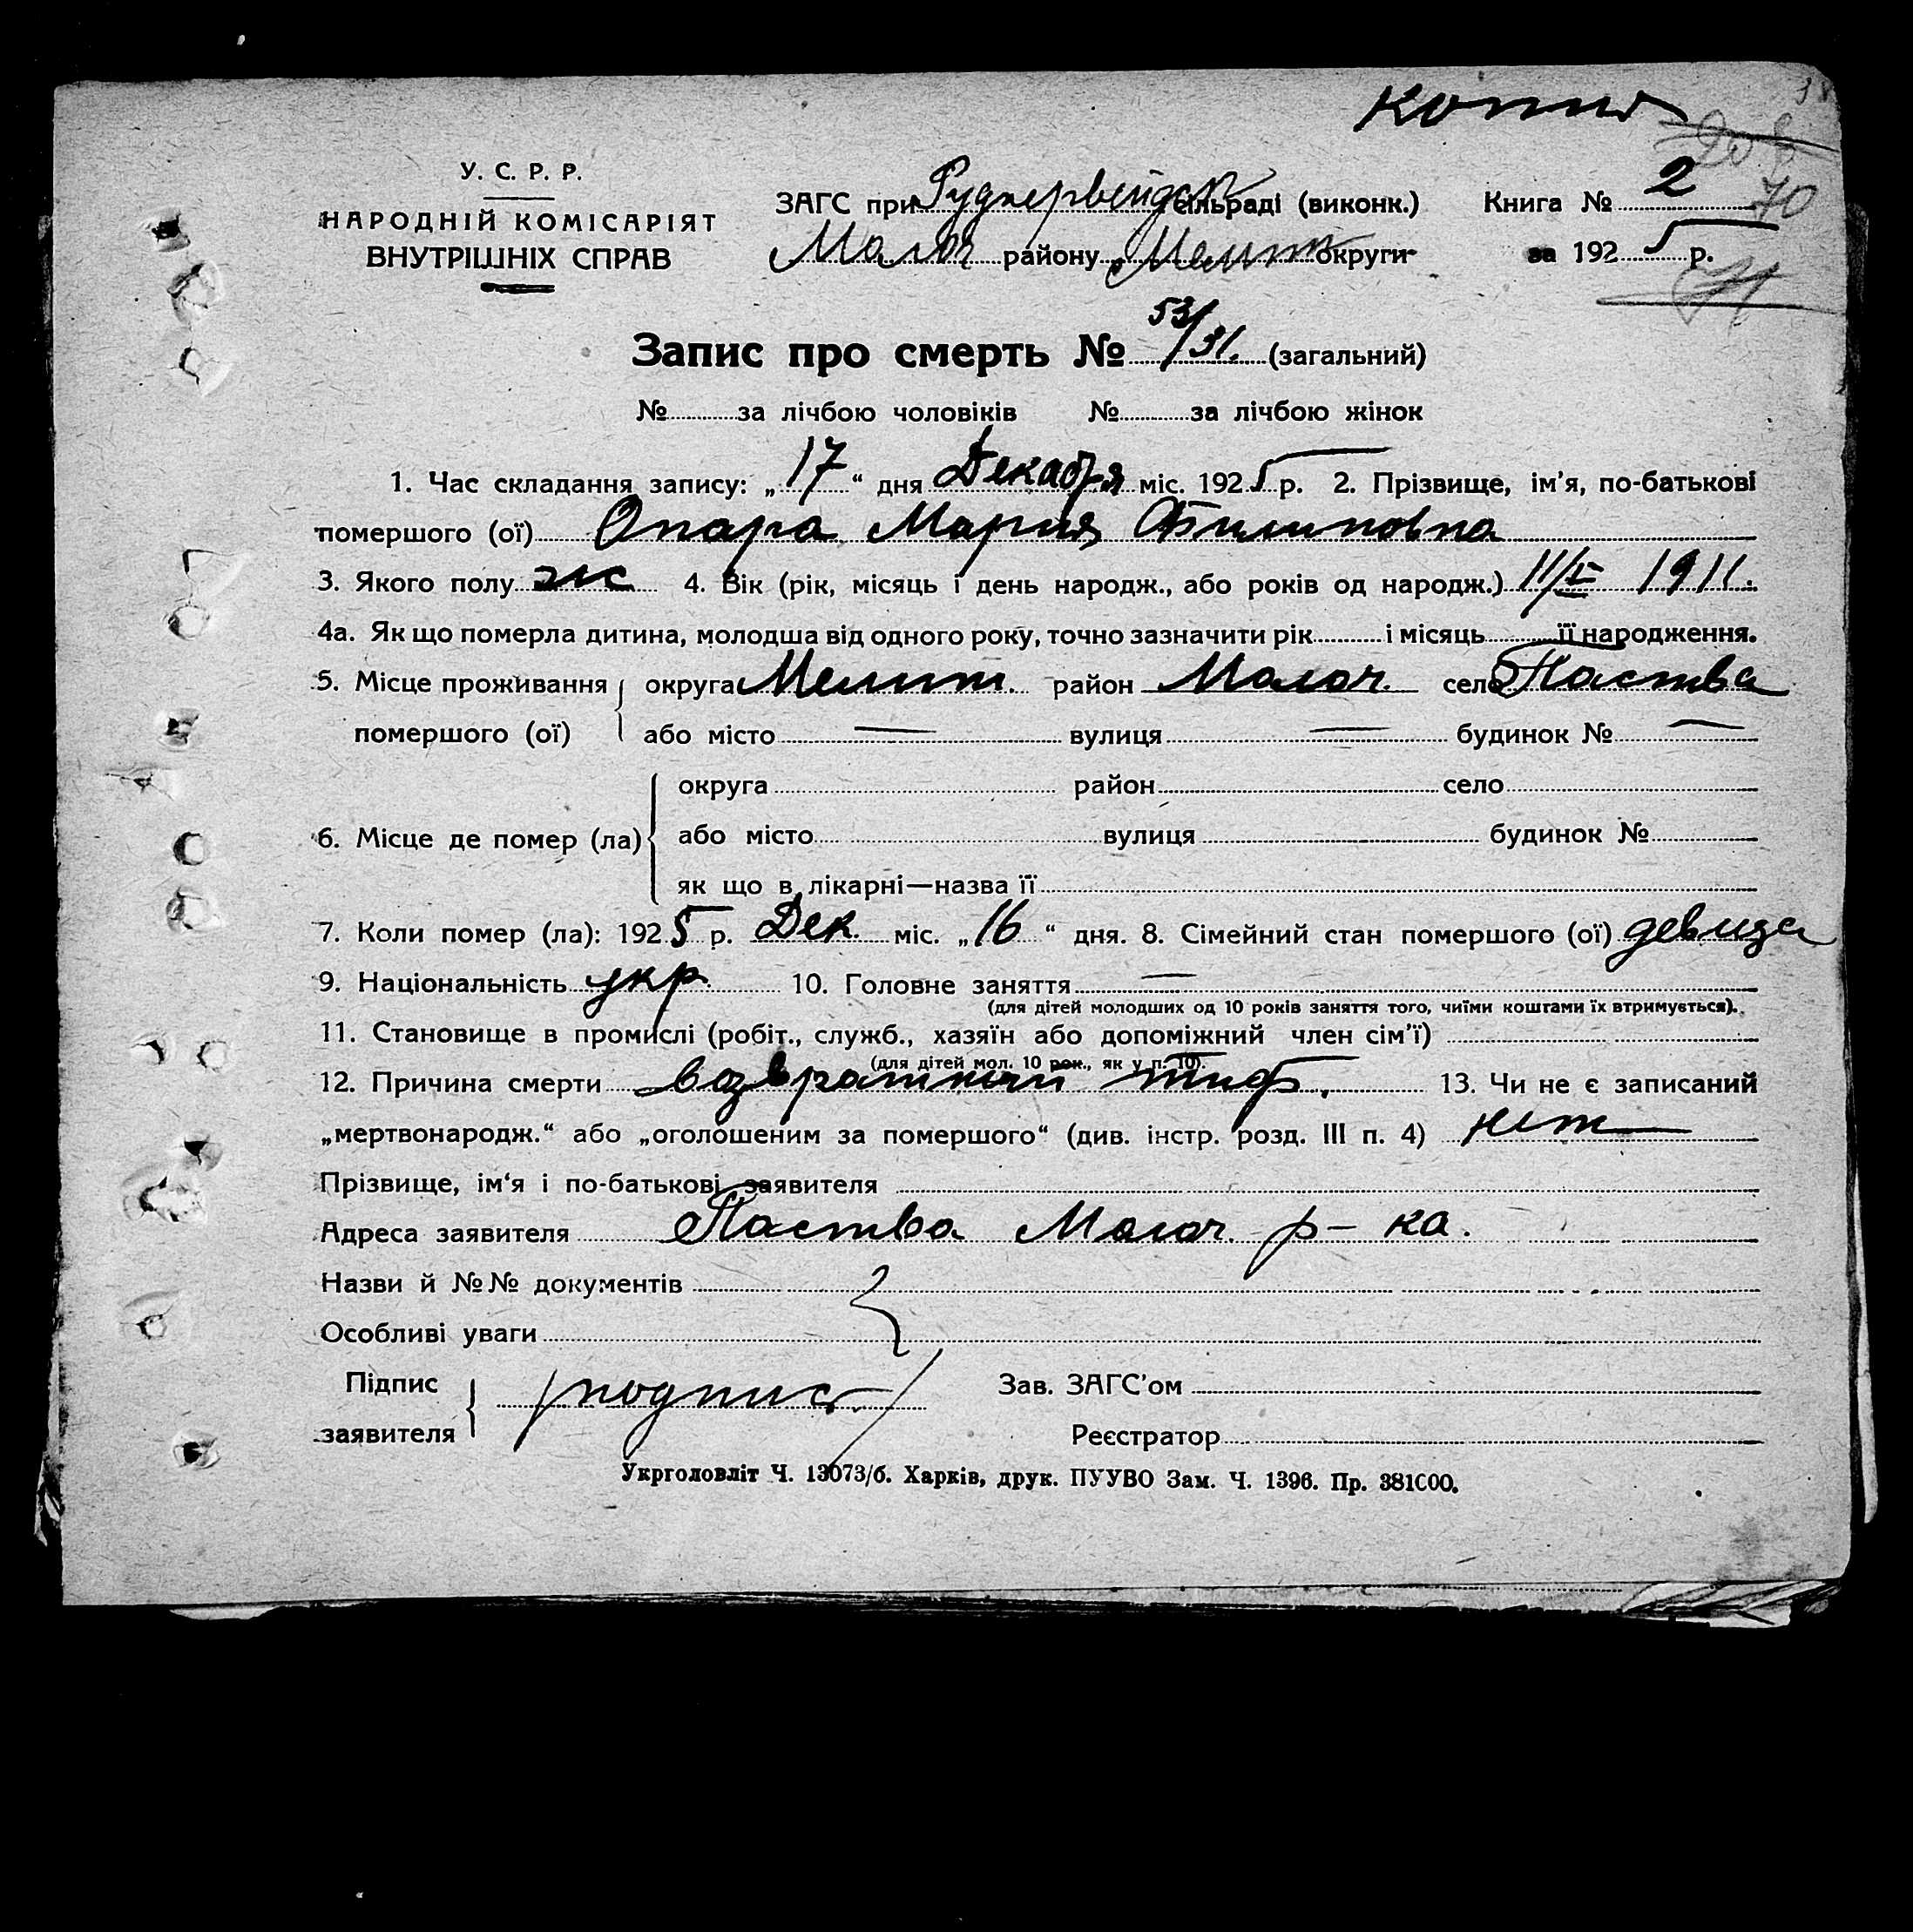 копия
У. С. Р. Р.
НАРОДНІЙ КОМІСАРІЯТ
ВНУТРІШНІХ СПРАВ
ЗАГС при сільраді (виконк.)
Книга № 2
70
Молоч району Мелит округи
за 1925 р.
71
Запис про смерть № 53/31. (загальний)
№ за лічбою чоловіків № за лічбою жінок
1. Час складання запису: „17“ дня Декабря міс. 1925 р. 2. Прізвище, ім’я, по-батькові
помершого (ої) Опара Мария Филиповна
3. Якого полу ж 4. Вік (рік, місяць і день народж., або років од народж.) 1911.
4а. Як що померла дитина, молодша від одного року, точно зазначити рік і місяць її народження.
5. Місце проживання округа Мелит. район Молоч. село Паства
помершого (ої) або місто — вулиця — будинок № —
округа район село
6. Місце де помер (ла) або місто вулиця будинок №
як що в лікарні—назва її
7. Коли помер (ла): 1925 р. Дек. міс. „16“ дня. 8. Сімейний стан помершого (ої) девица
9. Національність укр. 10. Головне заняття —
(для дітей молодших од 10 років заняття того, чиїми коштами їх втримується).
11. Становище в промислі (робіт., служб., хазяїн або допоміжний член сім’ї)
(для дітей мол. 10 рок., як у п. 10).
12. Причина смерти возвратный тиф. 13. Чи не є записаний
„мертвонародж.“ або „оголошеним за помершого“ (див. інстр. розд. III п. 4) нет
Прізвище, ім‘я і по-батькові заявителя
Адреса заявителя Паства Молоч р-ка.
Назви й №№ документів
Особливі уваги
Підпис
заявителя
/подпис/
Зав. ЗАГС’ом
Реєстратор
Укрголовліт Ч. 13073/б. Харків, друк. ПУУВО Зам. Ч. 1396. Пр. 381000.